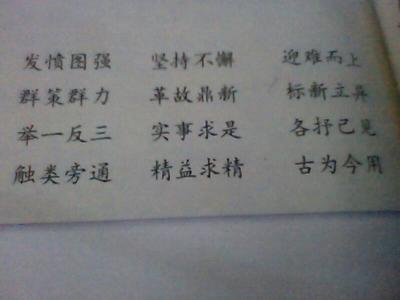 发愤图强 坚持不懈 迎难而上
群策群力 革故鼎新 标新立异
举一反三 实事求是 各抒己见
触类旁通 精益求精 古为今用